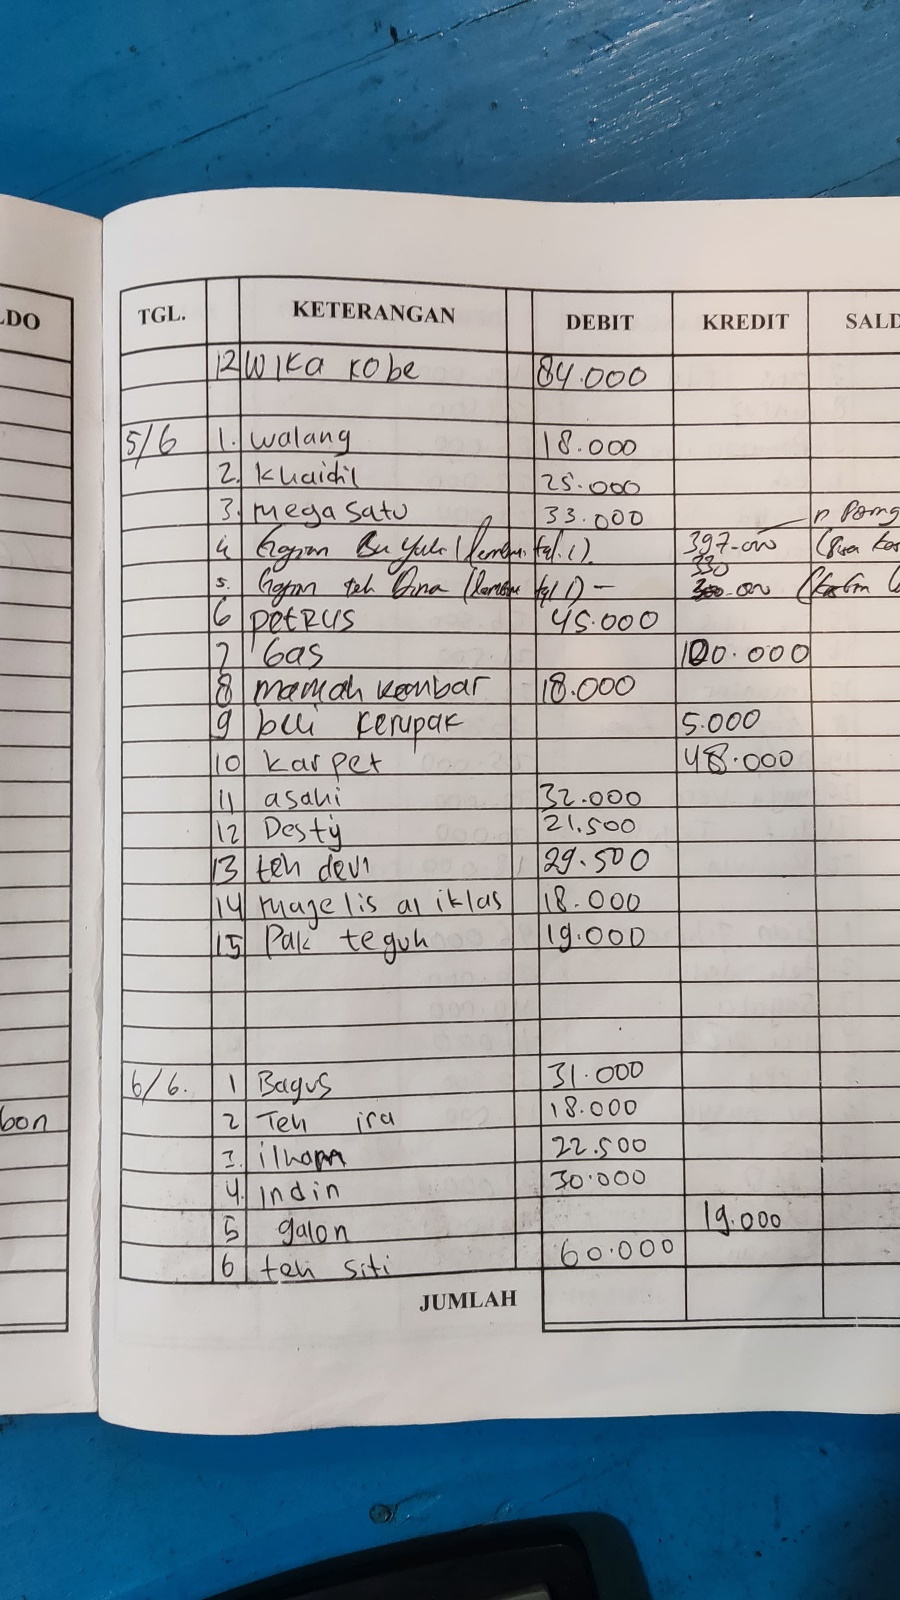 LDO
bon
TGL. KETERANGAN DEBIT KREDIT SALD
12 Wika kobe 84.000
5/6 1. walang 18.000
2. Khaidil 25.000
3. mega satu 33.000
4 Bu Yuli 397.000
5. teh 330
6 PETRUS 45.000
7 Gas 100.000
8 mamah kembar 18.000
9 beli kerupak 5.000
10 karpet 48.000
11 asahi 32.000
12 Desty 21.500
13 teh devi 29.500
14 majelis al iklas 18.000
15 Pak teguh 19.000
6/6. 1 Bagus 31.000
2 Teh ira 18.000
3. ilham 22.500
4. indin 30.000
5 galon 19.000
6 teh siti 60.000
JUMLAH